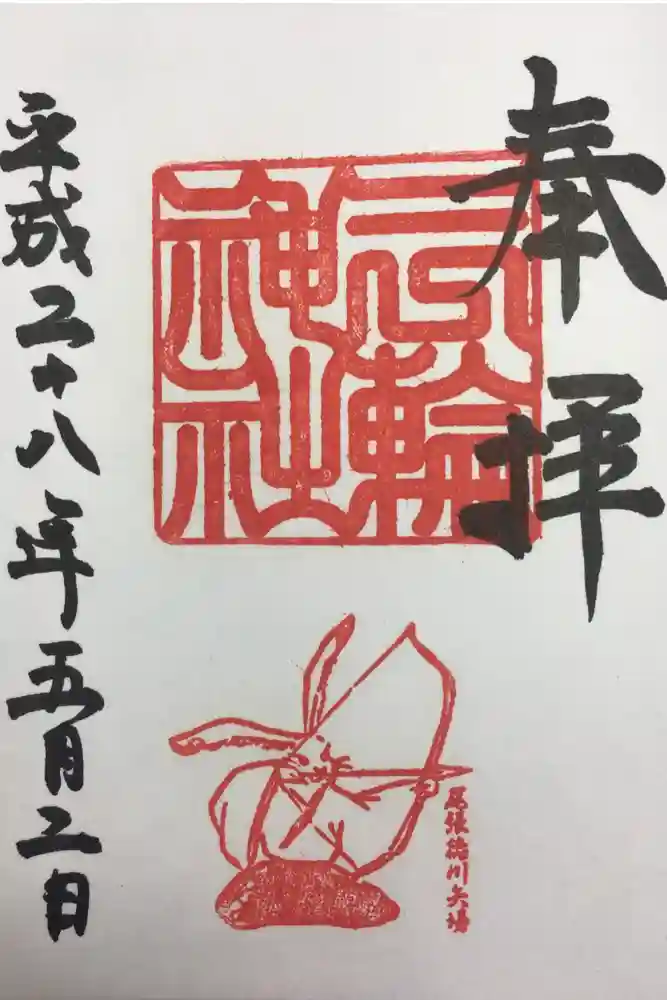 奉拝
三輪神社
尾張徳川矢場
平成二十八年五月二日